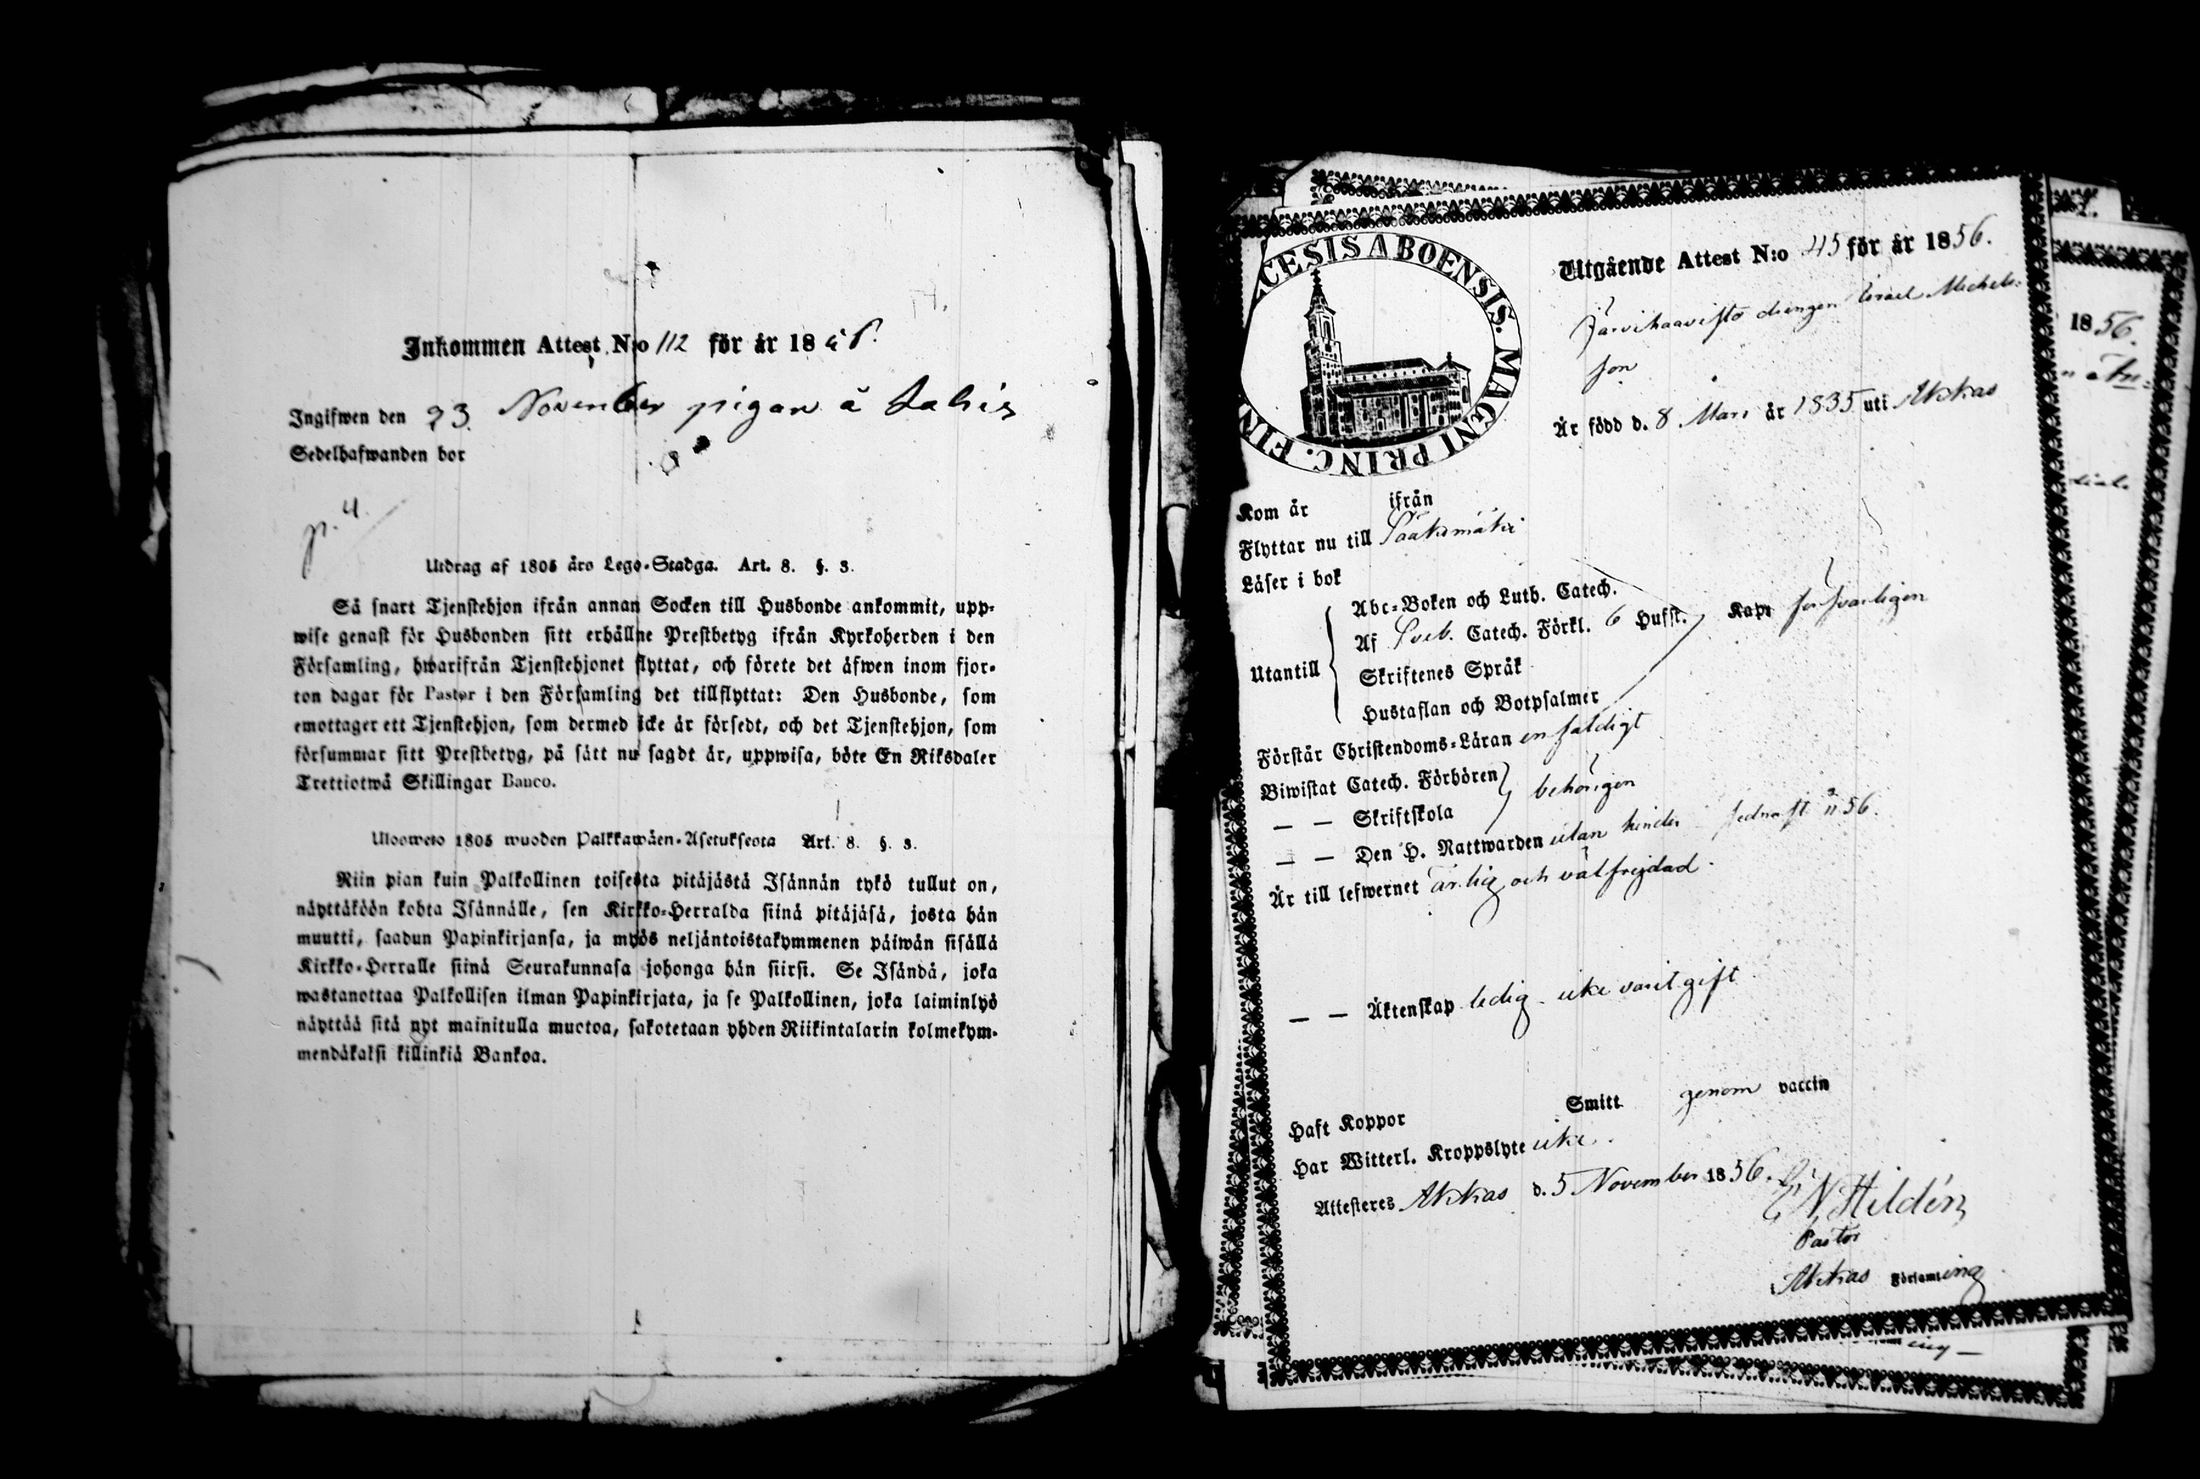 Inkommen Attest N:o 112 för år 18
Ingifwen den 23 November pigan å
Sedelhafwanden bor
p. 4.
Utdrag af 1805 års Lego-Stadga. Art. 8. §. 3.
Så snart Tjenstehjon ifrån annan Socken till Husbonde ankommit, upp-
wise genast för Husbonden sitt erhållne Prestbetyg ifrån Kyrkoherden i den
Församling, hwarifrån Tjenstehjonet flyttat, och förete det äfwen inom fjor-
ton dagar för Pastor i den Församling det tillflyttat: Den Husbonde, som
emottager ett Tjenstehjon, som dermed icke är försedt, och det Tjenstehjon, som
försummar sitt Prestbetyg, på sätt nu sagdt är, uppwisa, böte En Riksdaler
Trettiotwå Skillingar Banco.
Ulosweto 1805 wuoden Palkkawäen-Asetuksesta Art. 8. §. 3.
Niin pian kuin Palkollinen toisesta pitäjästä Isännän tykö tullut on,
näyttäköön kohta Isännälle, sen Kirkko-Herralda siinä pitäjäsä, josta hän
muutti, saadun Papinkirjansa, ja myös neljäntoistakymmenen päiwän sisällä
Kirkko-Herralle siinä Seurakunnasa johonga hän siirsi. Se Isändä, joka
wastanottaa Palkollisen ilman Papinkirjata, ja se Palkollinen, joka laiminlyö
näyttää sitä nyt mainitulla muotoa, sakotetaan yhden Riikintalarin kolmekym-
mendäkaksi killinkiä Bankoa.
CESIS ABOENSIS. MAGNI PRINC. FIN
Utgående Attest N:o 45 för år 1856.
Järvihaavisto drengen Israel Michels
son
Är född d. 8 Mars år 1835 uti Akkas
Kom år ifrån
Flyttar nu till Sääksmäki
Läser i bok
Utantill
Abc-Boken och Luth. Catech.
Af Sveb. Catech. Förkl. 6 Hufst. Kapt försvarligen
Skriftenes Språk
Hustaflan och Botpsalmer
Förstår Christendoms-Läran enfaldigt
Biwistat Catech. Förhören behörigen
— — Skriftskola
— — Den H. Nattwarden utan hinder sednast 56.
Är till lefwernet ärlig och välfrejdad.
— — Äktenskap ledig – icke varit gift
Haft Koppor Smitt genom vaccin
Har Witterl. Kroppslyte icke.
Attesteres Akkas d. 5 November 1856.
Hildén
Pastor
Akkas Församling
1856.